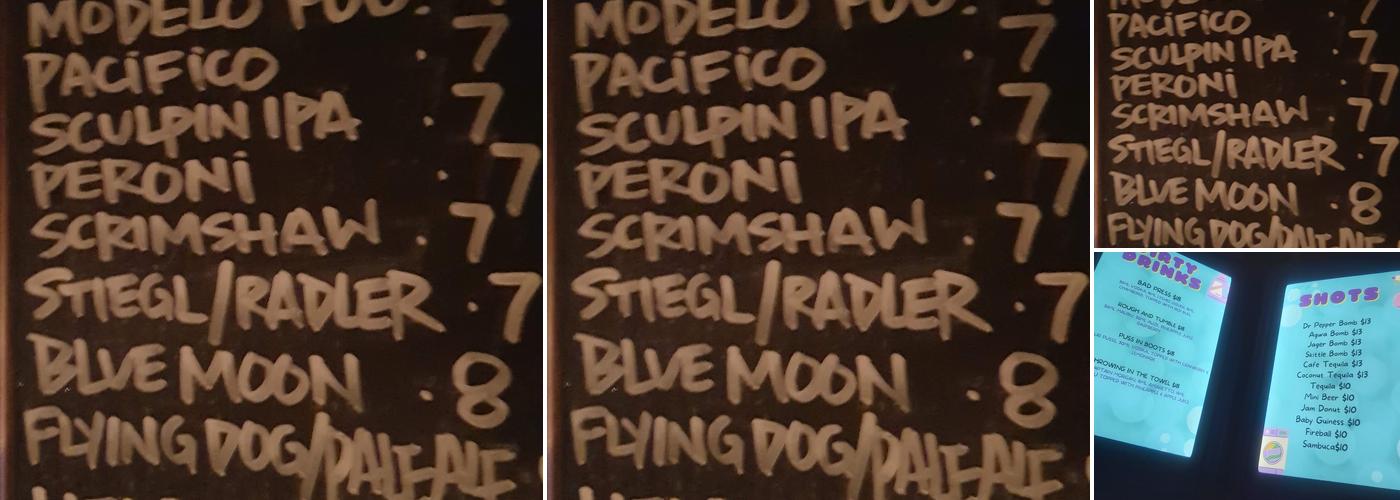 MODELO
7
PACIFICO . 7
SCULPIN IPA . 7
PERONI . 7
SCRIMSHAW . 7
STIEGL/RADLER . 7
BLUE MOON . 8
FLYING DOG/PALE ALE
MODELO
7
PACIFICO . 7
SCULPIN IPA . 7
PERONI . 7
SCRIMSHAW . 7
STIEGL/RADLER . 7
BLUE MOON . 8
FLYING DOG/PALE ALE
PACIFICO
SCULPIN IPA . 7
PERONI . 7
SCRIMSHAW . 7
STIEGL/RADLER . 7
BLUE MOON . 8
FLYING DOG/PALE ALE
DRINKS
BAD PRESS $18
ROUGH AND TUMBLE $18
PUSS IN BOOTS $18
THROWING IN THE TOWEL $18
SHOTS
Dr Pepper Bomb $13
Agwa Bomb $13
Jager Bomb $13
Skittle Bomb $13
Cafe Tequila $13
Coconut Tequila $13
Tequila $10
Mini Beer $10
Jam Donut $10
Baby Guiness $10
Fireball $10
Sambuca$10